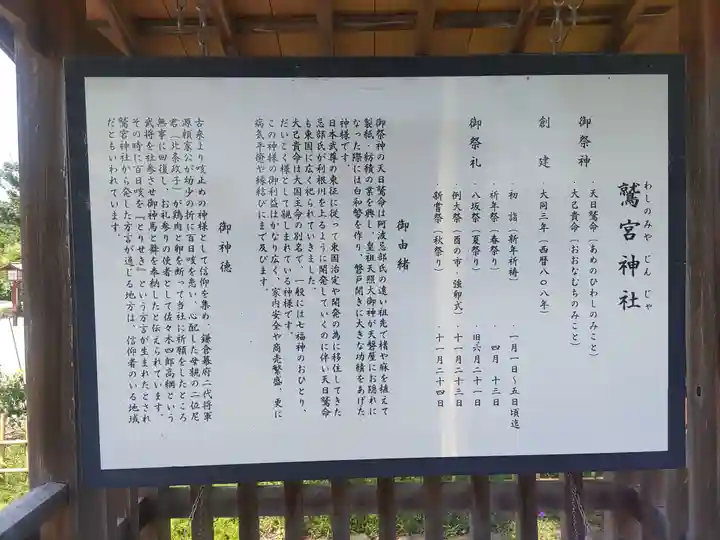 わしのみや じん じゃ
鷲宮神社
御祭神
・天日鷲命(あめのひわしのみこと)
・大己貴命(おおなむちのみこと)
創建
・大同三年(西暦八〇八年)
御祭礼
・初詣(新年祈祷)
・一月一日~五日頃迄
・祈年祭(春祭り)
・四月十三日
・八坂祭(夏祭り)
・旧六月二十一日
・例大祭(酉の市・強卵式)
・十一月二十三日
・新嘗祭(秋祭り)
・十一月二十四日
御由緒
御祭神の天日鷲命は阿波忌部氏の遠い祖先で楮や麻を植えて
製紙・紡績の業を興し、皇祖天照大御神が天磐屋にお隠れに
なった際には白和幣を作り、磐戸開きに大きな功績をあげた
神様です。
日本武尊の東征に従って東国治定や開発の為に移住してきた
忌部氏が利根川を上るように開発していくのに伴い天日鷲命
も東国に広く祀られていきました。
大己貴命は大国主命の別名で、一般には七福神のおひとり、
だいこく様として親しまれている神様です。
この神様の御利益はかなり広く、家内安全や商売繁盛、更に
病気平癒や縁結びにまで及びます。
御神徳
古来より咳止めの神様として信仰を集め、鎌倉幕府二代将軍
源頼家公が幼少の折に百日咳を患い、心配した母親の二位尼
君(北条政子)が鶏肉と卵を断って当社に祈願をしたところ
無事に回復し、お礼参りの使者として佐々木四郎高綱という
武将を社参させ御神馬と舞を奉納したと伝えられています。
その時に百日咳を『とりせき』という方言が生まれたとされ
鷲宮神社から発した方言が通じる地方は、信仰者のいる地域
だともいわれています。